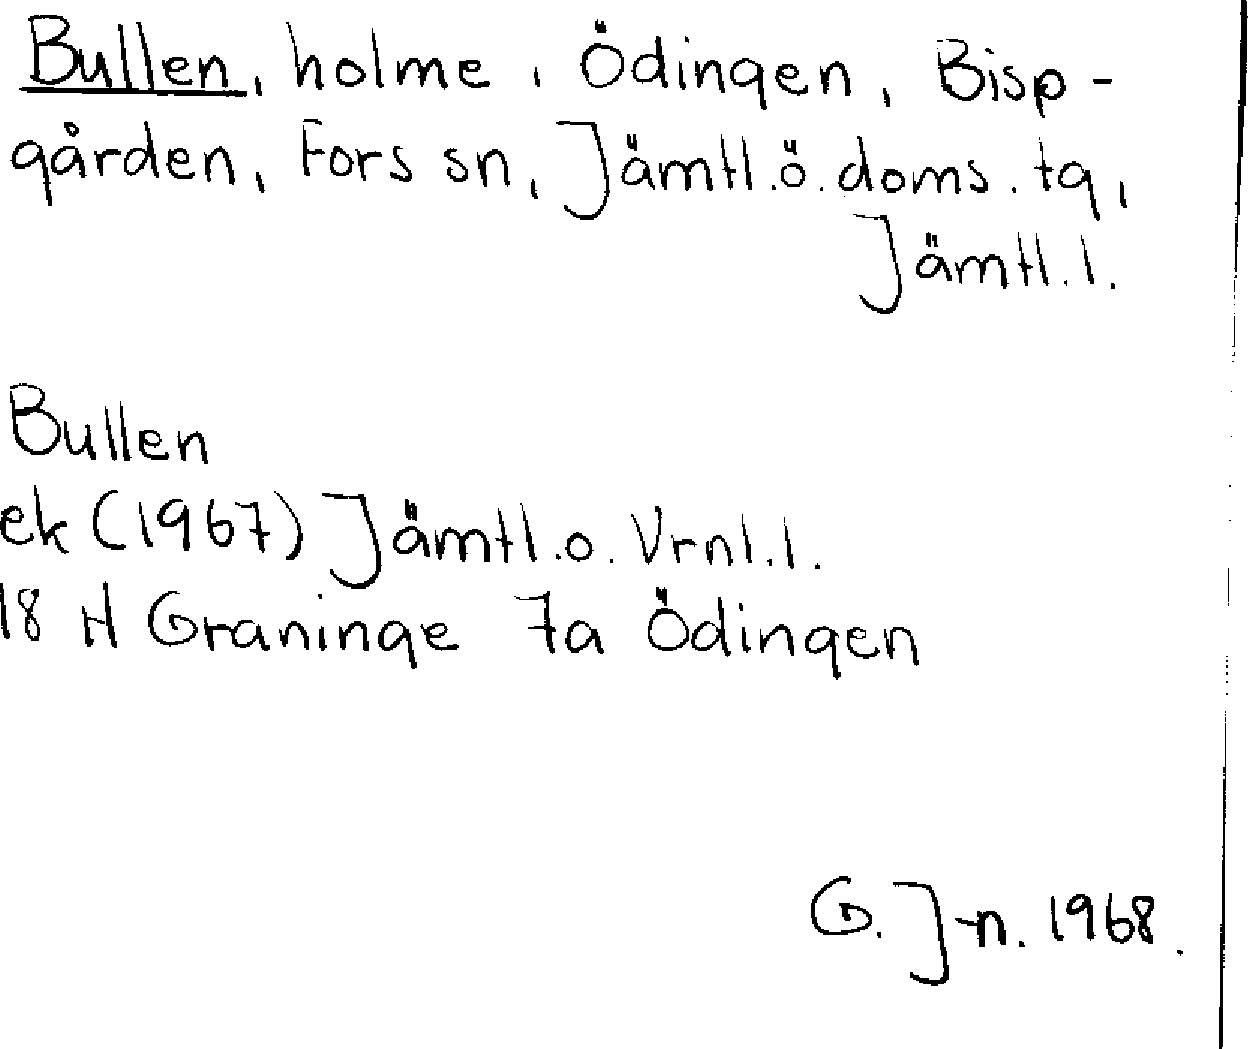 Bullen, holme, Ödingen, Bisp-
gården, Fors sn, Jämtl.ö.doms.tg,
Jämtl.l.
Bullen
ek (1967) Jämtl.o. Vrnl.l.
18 H Graninge 7a Ödingen
G. J-n. 1968.